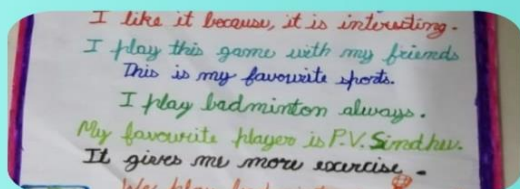 I like it because, it is interesting.
I play this game with my friends
This is my favourite sports.
I play badminton always.
My favourite player is P.V. Sindhu.
It gives me more exercise.